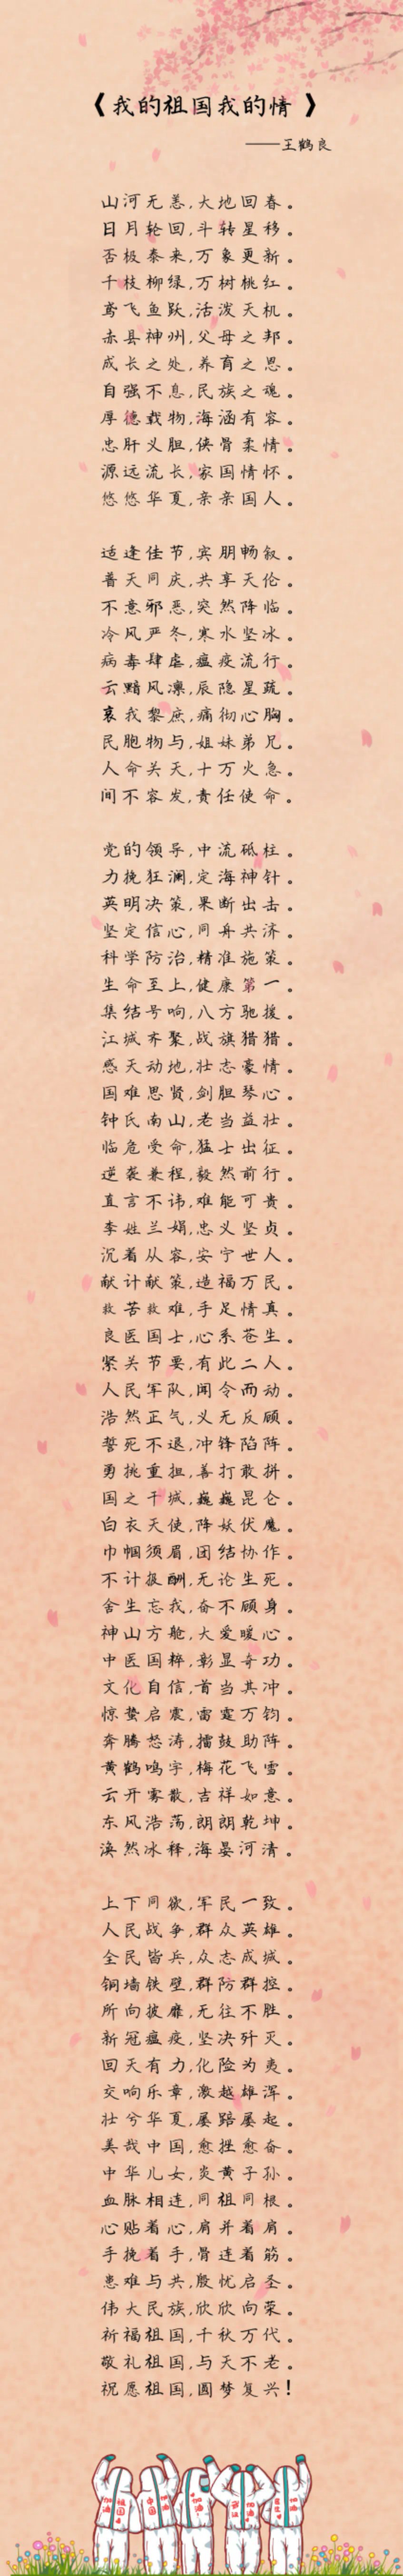 《我的祖国我的情》
——王鹤良
山河无恙,大地回春。
日月轮回,斗转星移。
否极泰来,万象更新。
千枝柳绿,万树桃红。
鸢飞鱼跃,活泼天机。
赤县神州,父母之邦。
成长之处,养育之恩。
自强不息,民族之魂。
厚德载物,海涵有容。
忠肝义胆,侠骨柔情。
源远流长,家国情怀。
悠悠华夏,亲亲国人。
适逢佳节,宾朋畅叙。
普天同庆,共享天伦。
不意邪恶,突然降临。
冷风严冬,寒水坚冰。
病毒肆虐,瘟疫流行。
云黯风凛,辰隐星疏。
哀我黎庶,痛彻心胸。
民胞物与,姐妹弟兄。
人命关天,十万火急。
间不容发,责任使命。
党的领导,中流砥柱。
力挽狂澜,定海神针。
英明决策,果断出击。
坚定信心,同舟共济。
科学防治,精准施策。
生命至上,健康第一。
集结号响,八方驰援。
江城齐聚,战旗猎猎。
感天动地,壮志豪情。
国难思贤,剑胆琴心。
钟氏南山,老当益壮。
临危受命,猛士出征。
逆袭兼程,毅然前行。
直言不讳,难能可贵。
李姓兰娟,忠义坚贞。
沉着从容,安宁世人。
献计献策,造福万民。
救苦救难,手足情真。
良医国士,心系苍生。
紧关节要,有此二人。
人民军队,闻令而动。
浩然正气,义无反顾。
誓死不退,冲锋陷阵。
勇挑重担,善打敢拼。
国之干城,巍巍昆仑。
白衣天使,降妖伏魔。
巾帼须眉,团结协作。
不计报酬,无论生死。
舍生忘我,奋不顾身。
神山方舱,大爱暖心。
中医国粹,彰显奇功。
文化自信,首当其冲。
惊蛰启震,雷霆万钧。
奔腾怒涛,擂鼓助阵。
黄鹤鸣宇,梅花飞雪。
云开雾散,吉祥如意。
东风浩荡,朗朗乾坤。
涣然冰释,海晏河清。
上下同欲,军民一致。
人民战争,群众英雄。
全民皆兵,众志成城。
铜墙铁壁,群防群控。
所向披靡,无往不胜。
新冠瘟疫,坚决歼灭。
回天有力,化险为夷。
交响乐章,激越雄浑。
壮兮华夏,屡踣屡起。
美哉中国,愈挫愈奋。
中华儿女,炎黄子孙。
血脉相连,同祖同根。
心贴着心,肩并着肩。
手挽着手,骨连着筋。
患难与共,殷忧启圣。
伟大民族,欣欣向荣。
祈福祖国,千秋万代。
敬礼祖国,与天不老。
祝愿祖国,圆梦复兴!
加油 祖国
加油 中国
加油
加油
加油